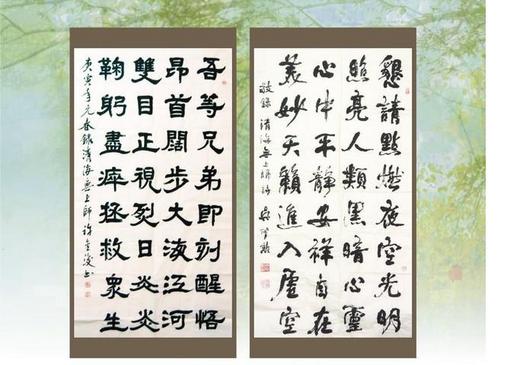 懇請點燃夜空光明
照亮人類黑暗心靈
心中平靜安祥自在
美妙天籟進入虛空
敬錄清海無上師詩
吾等兄弟即刻醒悟
昂首闊步大海江河
雙目正視烈日炎炎
鞠躬盡瘁拯救衆生
庚寅年元春錄清海無上師詩